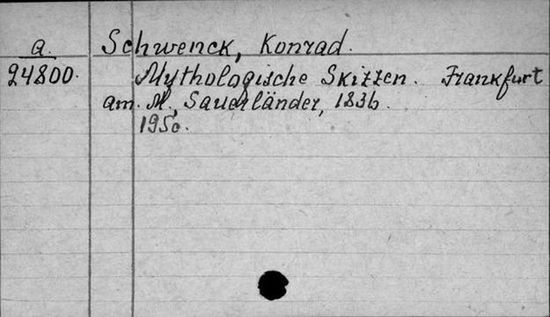 Q. Schwenck, Konrad.
24800. Mythologische Skizzen. Frankfurt
am. M., Sauerländer, 1836.
195o.